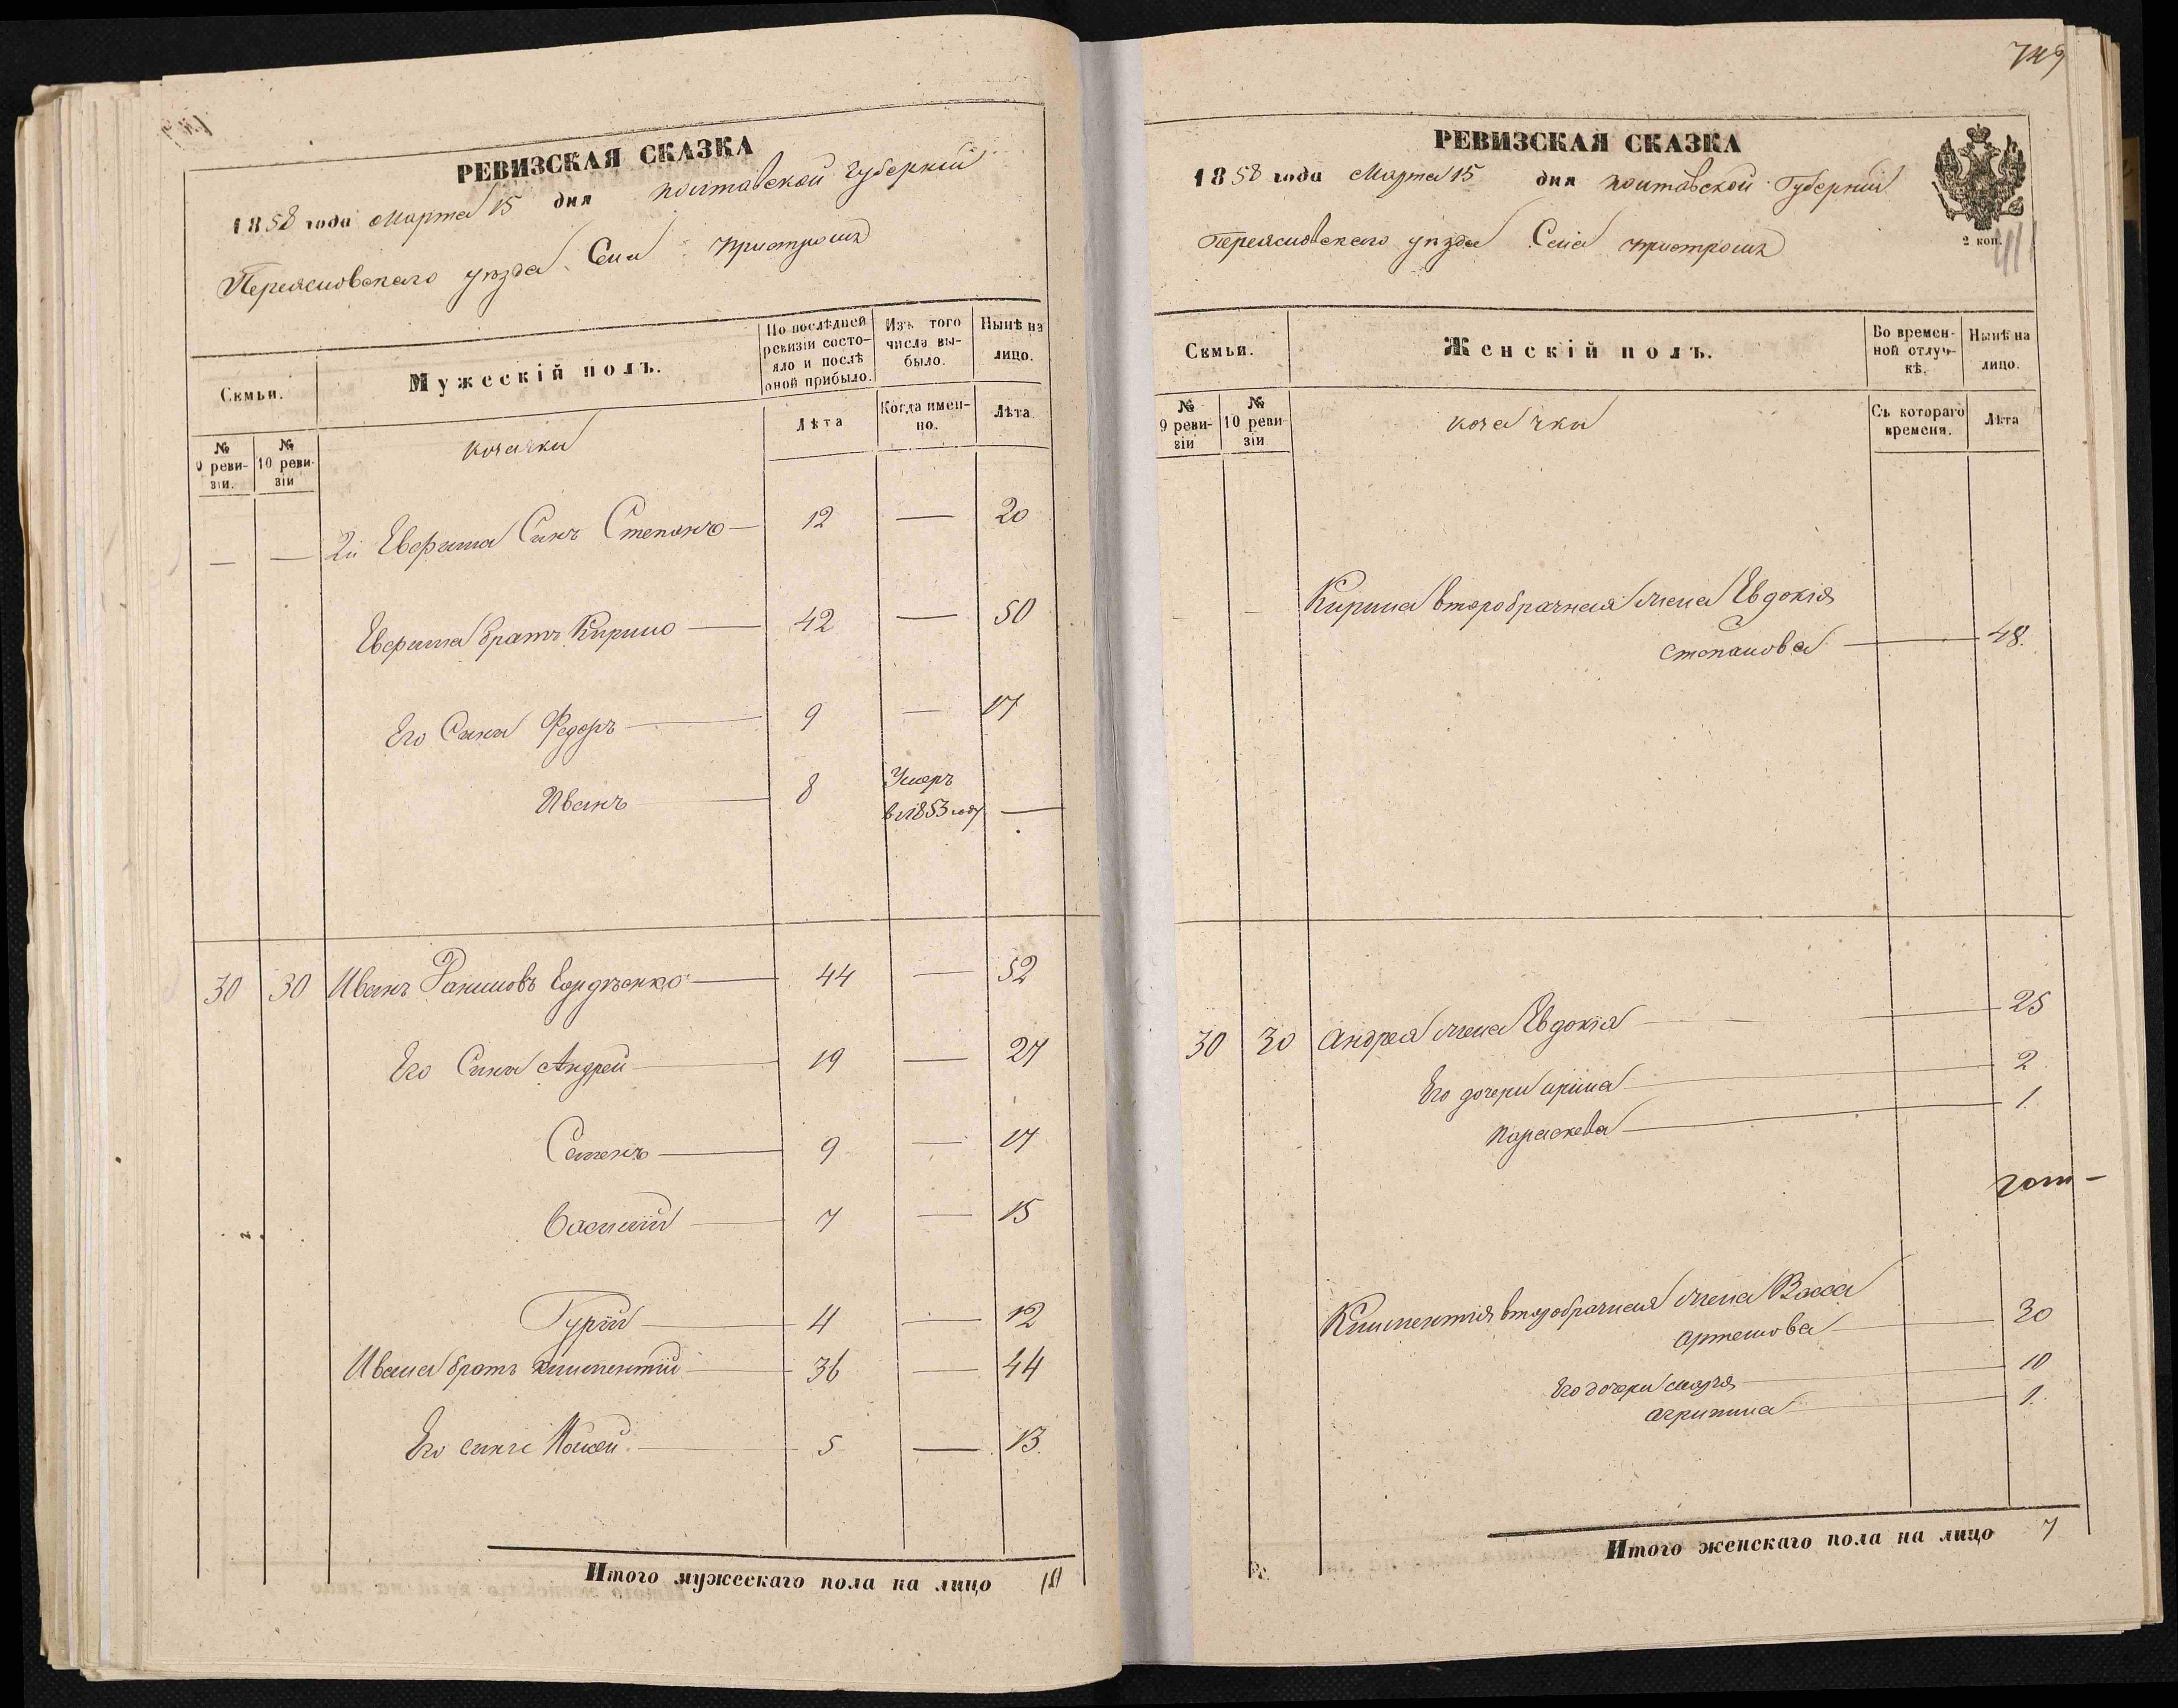 РЕВИЗСКАЯ СКАЗКА
1858 года Марта 15 дня Полтавской Губерніи
Переясловского уѣзда Села
Семьи.
Мужескій полъ.
По послѣдней ревизіи состояло и послѣ оной прибыло.
Изъ того числа выбыло.
Нынѣ на лицо.
№ 9 ревизіи.
№ 10 ревизіи
козачки
Лѣта
Когда именно.
Лѣта
— — 2й Евфима Синъ Степанъ — 12 — 20
Евфима братъ Кирило — 42 — 50
Его Сини Федоръ — 9 — 17
Иванъ — 8 Умеръ
в 1853 году —
30 30 Иванъ — 44 — 52
Его Сини Андрей — 19 — 27
Семенъ — 9 — 17
Василій — 7 — 15
Гурій — 4 — 12
Ивана братъ Климентій — 36 — 44
Его синъ Мойсей — 5 — 13.
Итого мужескаго пола на лицо
749
РЕВИЗСКАЯ СКАЗКА
1858 года Марта 15 дня Полтавской Губерніи
Переясловского уѣзда Села
2 коп.
Семьи.
Женскій полъ.
Во временной отлучкѣ.
Нынѣ на лицо.
№ 9 ревизіи
№ 10 ревизіи
козачки
Съ котораго времени.
Лѣта
Кирила второбрачная жена Евдокія
Степанова — 48.
30 30 Андрея жена Евдокія — 25
Его дочери Аріна — 2
Параскева — 1.
Климентія второбрачная жена Васса
Артемова — 30
Его дочери — 10
Агрипина — 1.
Итого женскаго пола на лицо 7